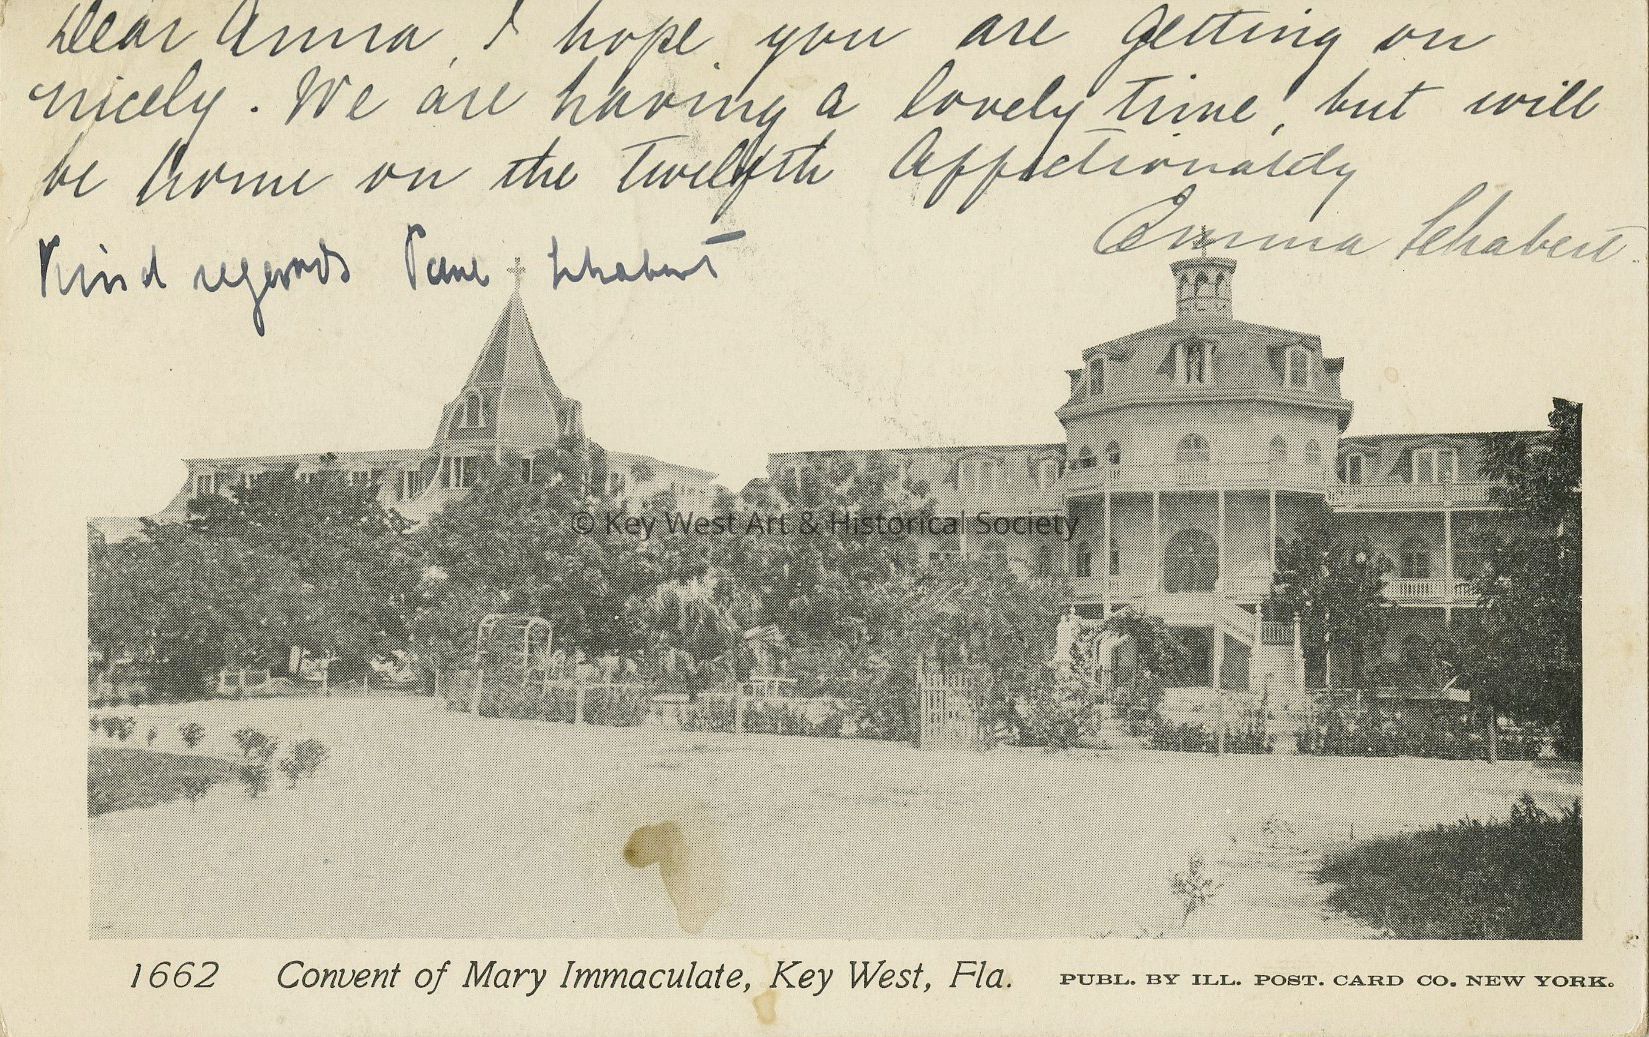 Dear Anna, I hope you are getting on
nicely. We are having a lovely time, but will
be home on the twelfth Affectionatly
Emma Schabert.
Kind regards Schabert
© Key West Art & Historical Society
1662 Convent of Mary Immaculate, Key West, Fla. PUBL. BY ILL. POST. CARD CO. NEW YORK.